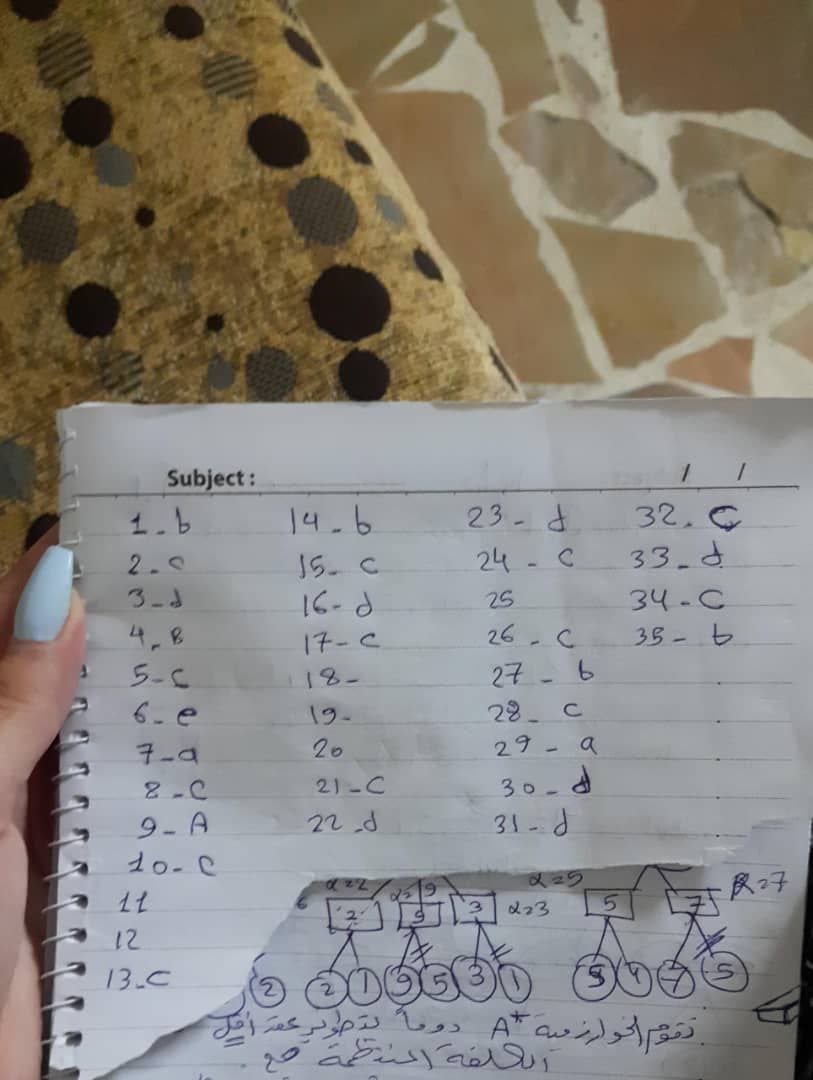 Subject :
/ /
1-b
2-c
3-d
4-B
5-c
6-e
7-a
8-C
9-A
10-C
11
12
13-C
14-b
15-c
16-d
17-c
18-
19-
20
21-C
22-d
23-d
24-c
25
26-c
27-b
28-c
29-a
30-d
31-d
32. C
33-d
34-C
35-b
α=2 9 α=5
2 9 3 α=3 5 7 =7
2 2 1 9 5 3 1 4 7 5
تقوم الخوارزمية A* دوماً بتطوير عقد
الكلفة المنتظمة